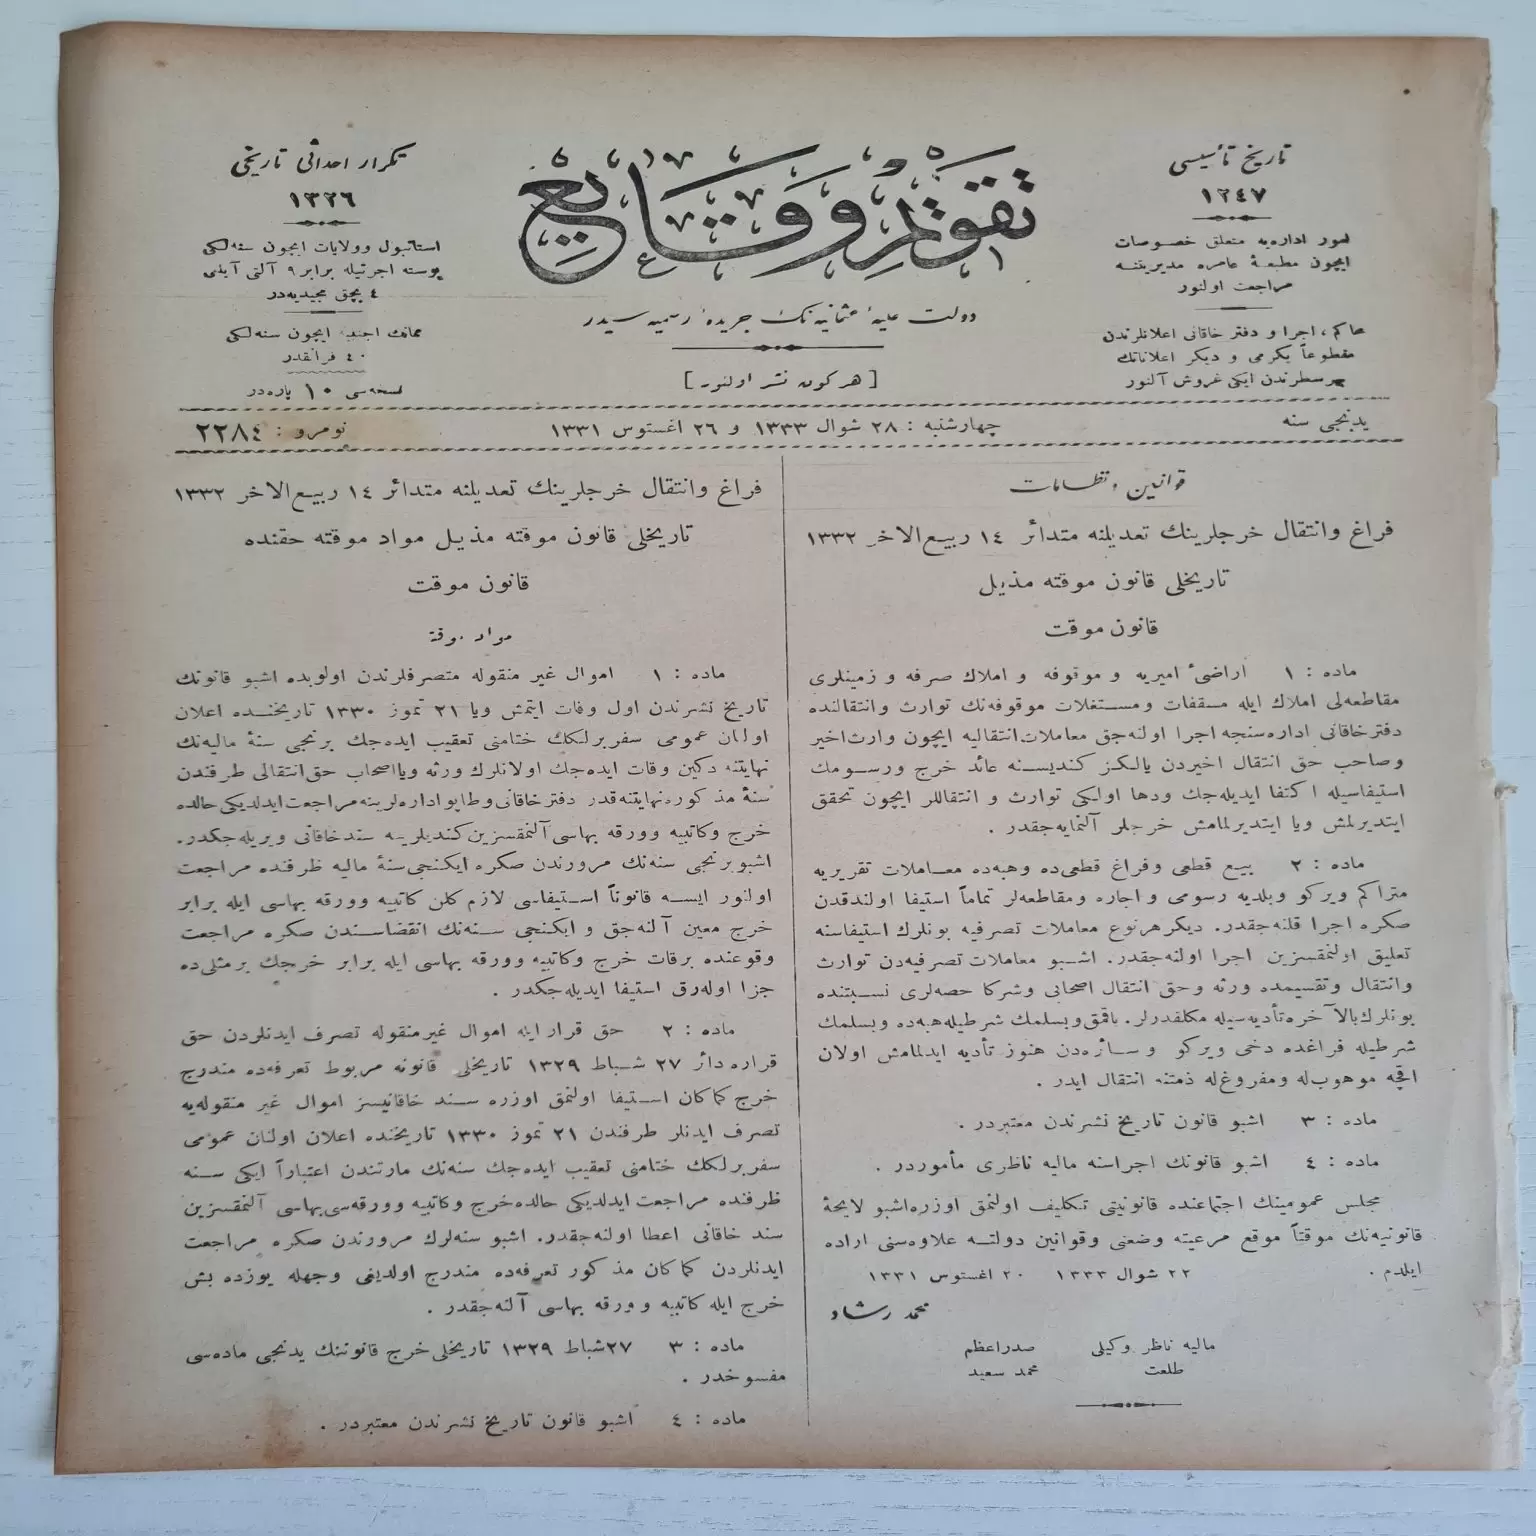 تاريخ تأسيسى
١٢٤٧
امور اداره‌يه متعلق خصوصات
ايچون مطبعهٔ عامره مديريتنه
مراجعت اولنور
محاكم، اجرا و دفتر خاقانى اعلانلرندن
مقطوعاً يكرمى و ديكر اعلاناتك
هرسطرندن ايكى غروش آلنور
تقويم وقايع
دولت عليهٔ عثمانيه‌نك جريدهٔ رسميه‌سيدر
[هركون نشر اولنور]
تكرار احداثى تاريخى
١٣٢٦
استانبول وولايات ايچون سنه‌لكى
پوسته اجرتيله برابر ٩ آلتى آيلغى
٤ بچق مجيديه‌در
ممالك اجنبيه ايچون سنه‌لكى
٤٠ فرانقدر
نسخه‌سى ١٠ پاره‌در
يدنجى سنه
چهارشنبه : ٢٨ شوال ١٣٣٣ و ٢٦ اغستوس ١٣٣١
نومرو : ٢٢٨٤
قوانين ونظامات
فراغ وانتقال خرجلرينك تعديلنه متدائر ١٤ ربيع‌الاخر ١٣٣٢
تاريخلى قانون موقته مذيل
قانون موقت
ماده : ١ اراضئ اميريه و موقوفه و املاك صرفه و زمينلرى
مقاطعه‌لى املاك ايله مسقفات ومستغلات موقوفه‌نك توارث وانتقالنده
دفترخاقانى اداره‌سنجه اجرا اولنه‌جق معاملات انتقاليه ايچون وارث اخير
وصاحب حق انتقال اخيردن يالكز كنديسنه عائد خرج ورسومك
استيفاسيله اكتفا ايديله‌جك ودها اولكى توارث و انتقاللر ايچون تحقق
ايتديرلمش ويا ايتديرلمامش خرجلر آلنمايه‌جقدر .
ماده : ٢ بيع قطعى وفراغ قطعى‌ده وهبه‌ده معاملات تقريريه
متراكم ويركو وبلديه رسومى و اجاره ومقاطعه‌لر تماماً استيفا اولندقدن
صكره اجرا قلنه‌جقدر. ديكر هرنوع معاملات تصرفيه بونلرك استيفاسنه
تعليق اولنمقسزين اجرا اولنه‌جقدر. اشبو معاملات تصرفيه‌دن توارث
وانتقال وتقسيمده ورثه وحق انتقال اصحابى وشركا حصه‌لرى نسبتنده
بونلرك بالآخره تأديه‌سيله مكلفدرلر. باقمق وبسلمك شرطيله هبه‌ده وبسلمك
شرطيله فراغده دخى ويركو وسائره‌دن هنوز تأديه ايدلمامش اولان
اقچه موهوب‌له ومفروغ‌له ذمتنه انتقال ايدر .
ماده : ٣ اشبو قانون تاريخ نشرندن معتبردر .
ماده : ٤ اشبو قانونك اجراسنه ماليه ناظرى مأموردر .
مجلس عمومينك اجتماعنده قانونيتى تكليف اولنمق اوزره اشبو لايحهٔ
قانونيه‌نك موقتاً موقع مرعيته وضعنى وقوانين دولته علاوه‌سنى اراده
ايلدم . ٢٢ شوال ١٣٣٣ ٢٠ اغستوس ١٣٣١
محمد رشاد
ماليه ناظر وكيلى صدراعظم
طلعت محمد سعيد
فراغ وانتقال خرجلرينك تعديلنه متدائر ١٤ ربيع‌الاخر ١٣٣٢
تاريخلى قانون موقته مذيل مواد موقته حقنده
قانون موقت
مواد موقته
ماده : ١ اموال غير منقوله متصرفلرندن اولوبده اشبو قانونك
تاريخ نشرندن اول وفات ايتمش ويا ٢١ تموز ١٣٣٠ تاريخنده اعلان
اولنان عمومى سفربرلكك ختامنى تعقيب ايده‌جك برنجى سنهٔ ماليه‌نك
نهايتنه دكين وفات ايده‌جك اولانلرك ورثه ويا اصحاب حق انتقالى طرفندن
سنهٔ مذكوره نهايتنه‌قدر دفترخاقانى وطاپو اداره‌لرينه مراجعت ايدلديكى حالده
خرج وكاتبيه وورقه بهاسى آلنمقسزين كنديلرينه سند خاقانى ويريله‌جكدر.
اشبو برنجى سنه‌نك مرورندن صكره ايكنجى سنهٔ ماليه ظرفنده مراجعت
اولنور ايسه قانوناً استيفاسى لازم كلن كاتبيه وورقه بهاسى ايله برابر
خرج معين آلنه‌جق و ايكنجى سنه‌نك انقضاسندن صكره مراجعت
وقوعنده برقات خرج وكاتبيه وورقه بهاسى ايله برابر خرجك برمثلى‌ده
جزا اوله‌رق استيفا ايديله‌جكدر .
ماده : ٢ حق قرار ايله اموال غيرمنقوله تصرف ايدنلردن حق
قراره دائر ٢٧ شباط ١٣٢٩ تاريخلى قانونه مربوط تعرفه‌ده مندرج
خرج كماكان استيفا اولنمق اوزره سند خاقانيسز اموال غير منقوله‌يه
تصرف ايدنلر طرفندن ٢١ تموز ١٣٣٠ تاريخنده اعلان اولنان عمومى
سفربرلكك ختامنى تعقيب ايده‌جك سنه‌نك مارتندن اعتباراً ايكى سنه
ظرفنده مراجعت ايدلديكى حالده خرج وكاتبيه وورقه‌سى بهاسى آلنمقسزين
سند خاقانى اعطا اولنه‌جقدر. اشبو سنه‌لرك مرورندن صكره مراجعت
ايدنلردن كماكان مذكور تعرفه‌ده مندرج اولديغى وجهله يوزده بش
خرج ايله كاتبيه و ورقه بهاسى آلنه‌جقدر .
ماده : ٣ ٢٧ شباط ١٣٢٩ تاريخلى خرج قانوننك يدنجى ماده‌سى
مفسوخدر .
ماده : ٤ اشبو قانون تاريخ نشرندن معتبردر .